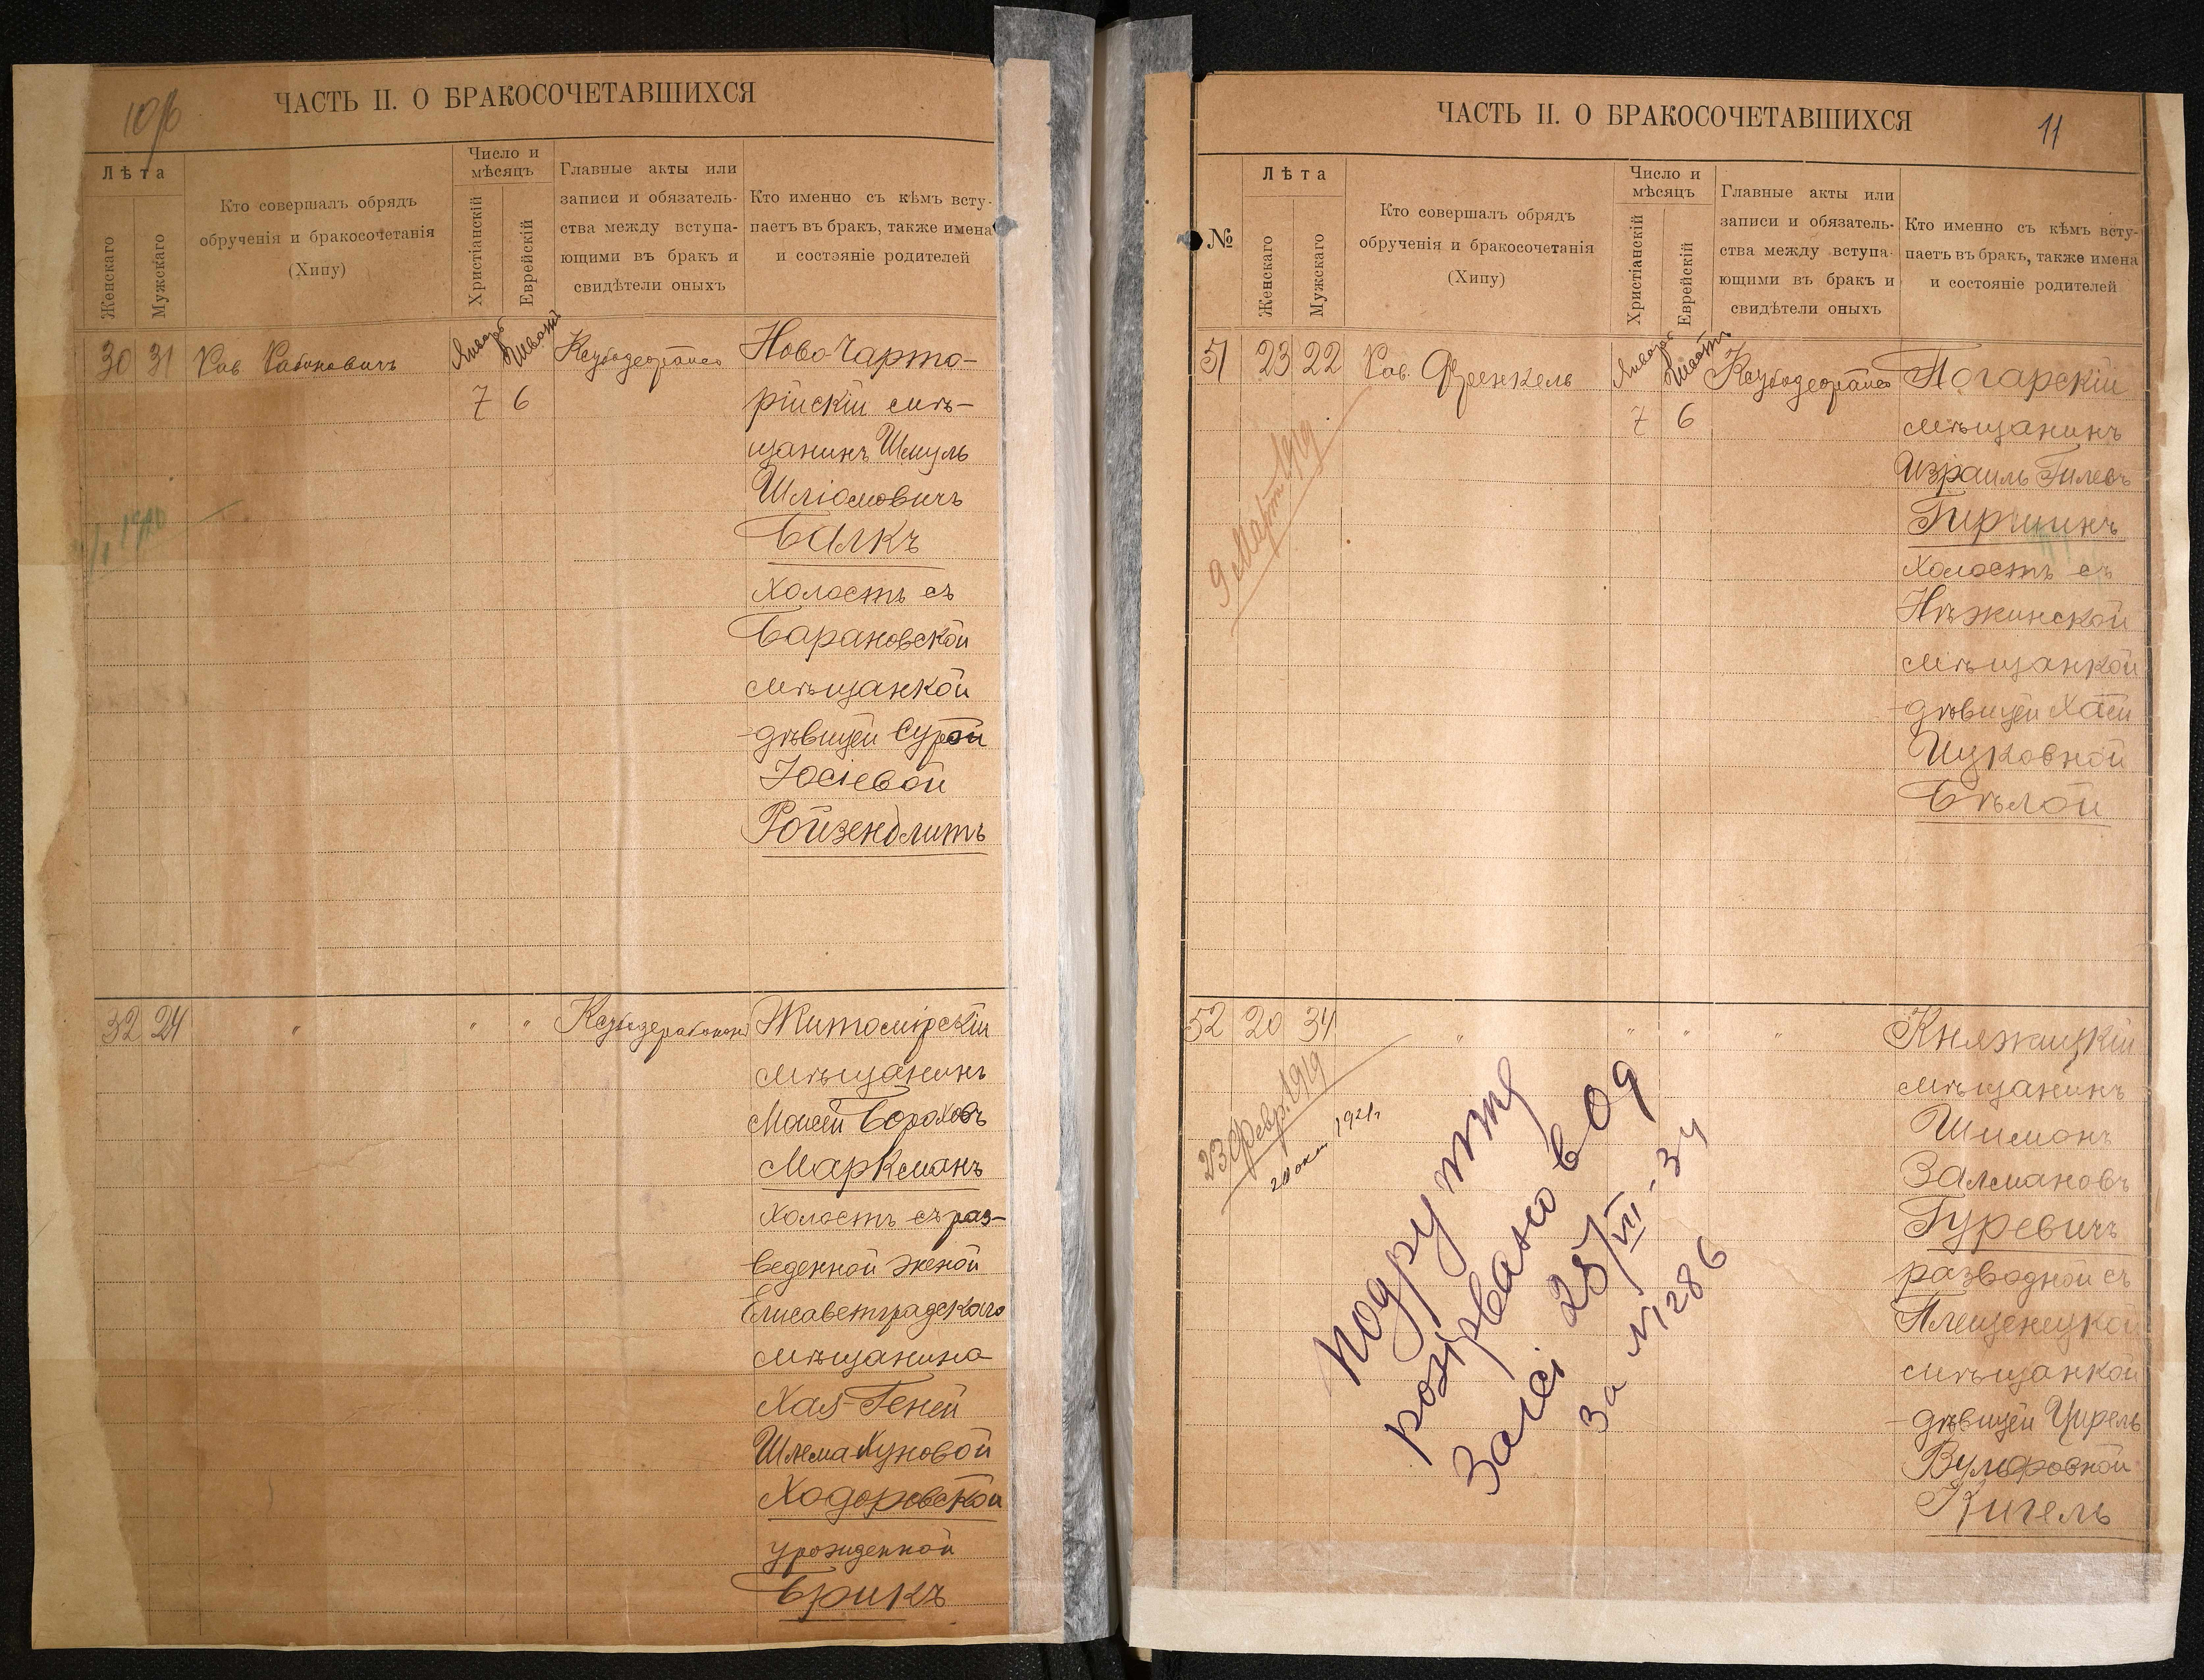 10об
ЧАСТЬ II. О БРАКОСОЧЕТАВШИХСЯ
Лѣта
Женскаго
Мужскаго
Кто совершалъ обрядъ
обрученія и бракосочетанія
(Хипу)
Число и
мѣсяцъ
Христіанскій
Еврейскій
Главные акты или
записи и обязатель-
ства между вступа-
ющими въ бракъ и
свидѣтели оныхъ
Кто именно съ кѣмъ всту-
паетъ въ бракъ, также имена
и состояніе родителей
30 31 Рав Рабиновичъ
Январь Шватъ
7 6
Ново Чарто-
рійскій мѣ-
щанинъ Шмуль
Шліомовичъ
Балкъ
холостъ съ
Барановской
мѣщанкой
дѣвицей Сурой
Юсіевой
Ройзенблитъ
32 24 " " "
Житомірскій
мѣщанинъ
Мошей Бораховъ
Маркманъ
холостъ съ раз-
веденной женой
Елисаветградскаго
мѣщанина
Хая-Геней
Шлема Хуновой
Ходоровской
урожденной
Брикъ
ЧАСТЬ II. О БРАКОСОЧЕТАВШИХСЯ
11
№
Лѣта
Женскаго
Мужскаго
Кто совершалъ обрядъ
обрученія и бракосочетанія
(Хипу)
Число и
мѣсяцъ
Христіанскій
Еврейскій
Главные акты или
записи и обязатель-
ства между вступа-
ющими въ бракъ и
свидѣтели оныхъ
Кто именно съ кѣмъ всту-
паетъ въ бракъ, также имена
и состояніе родителей
51 23 22 Рав. Френкель
Январь Шватъ
7 6
9 Март 1919
Погарскій
мѣщанинъ
Израиль Гилевъ
Гиршинъ
холостъ съ
Нѣжинской
мѣщанкой
дѣвицей Хаей
Ицковной
Бѣлой
52 20 34 " " " "
23 Февр. 1919
20 окт 1921г
Княжицкій
мѣщанинъ
Шимонъ
Залмановъ
Гуревичъ
разводной съ
Плещеницкой
мѣщанкой
дѣвицей Цирель
Вульфовной
Кигель
подружжя
розірвано в 09
Загсі 25/VII-34
за №1286